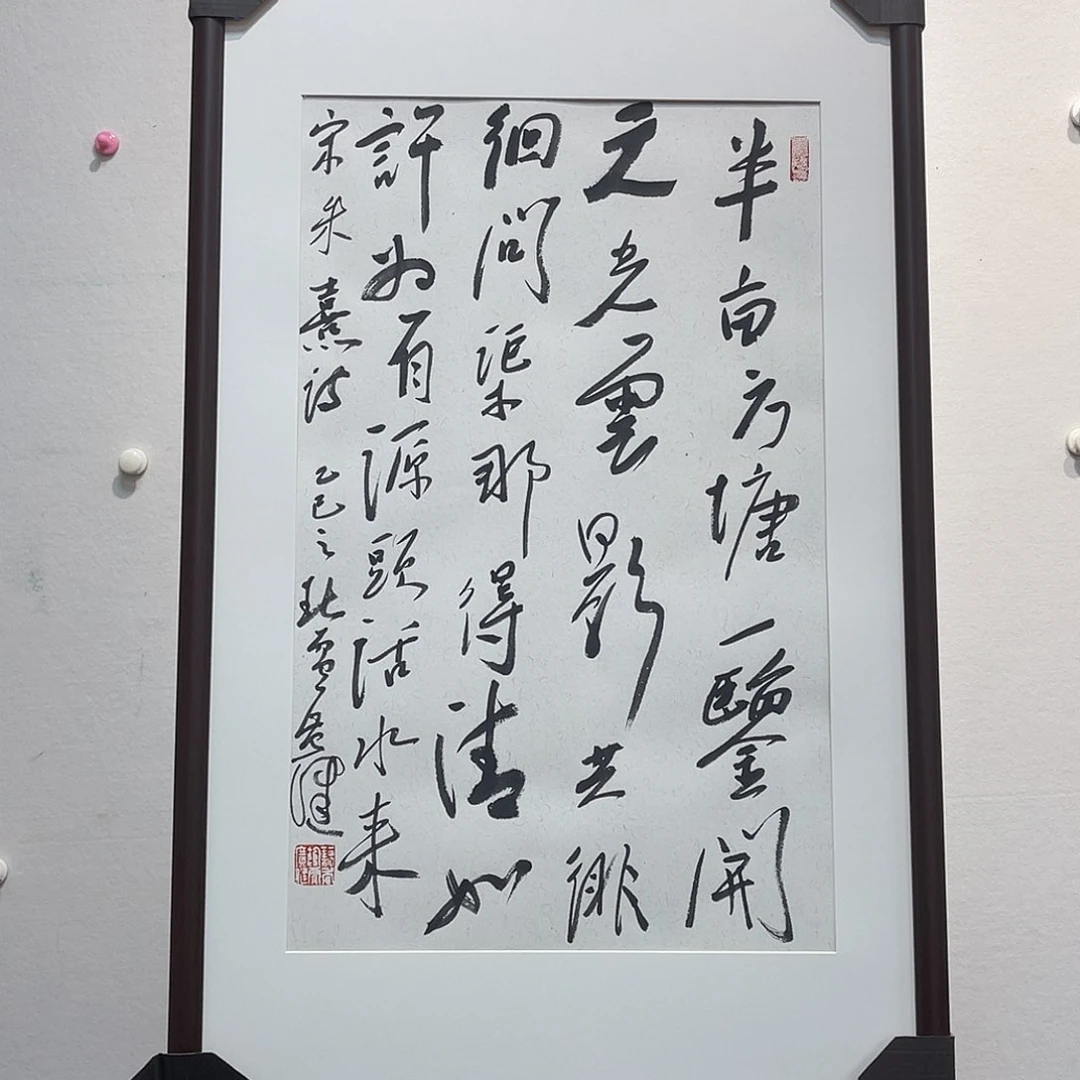 半亩方塘一鑒開
天光雲影共徘
徊問渠那得清如
許為有源頭活水来
宋朱熹詩 乙巳之